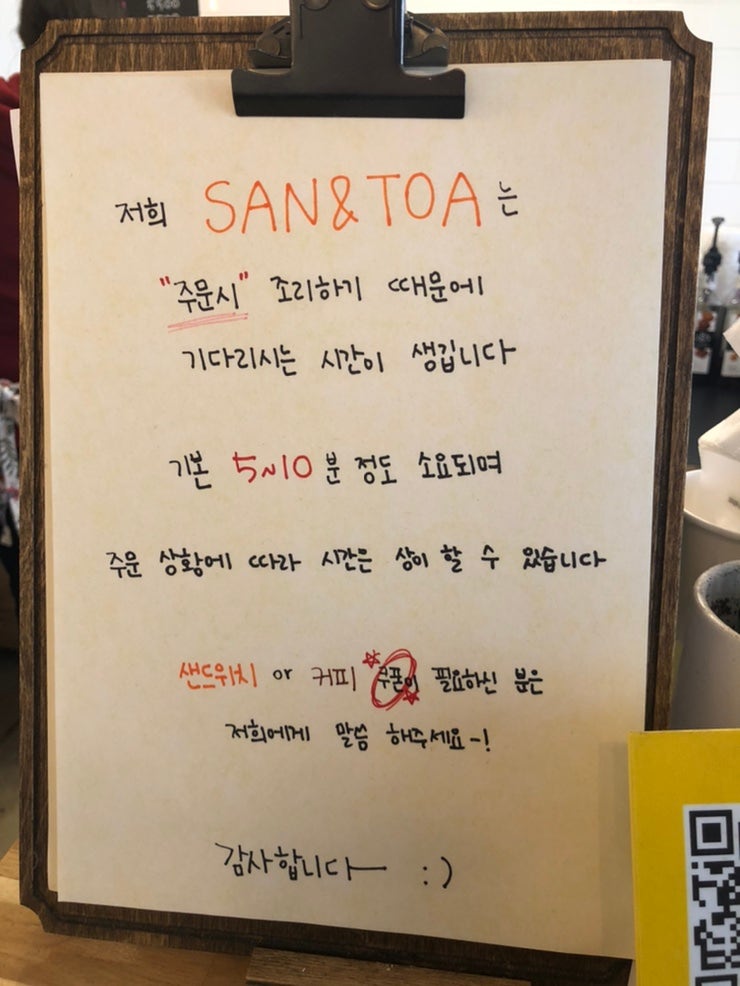 저희 SAN&TOA는
"주문시" 조리하기 때문에
기다리시는 시간이 생깁니다
기본 5~10분 정도 소요되며
주문 상황에 따라 시간은 상이 할 수 있습니다
샌드위치 or 커피 쿠폰이 필요하신 분은
저희에게 말씀 해주세요~!
감사합니다 :)